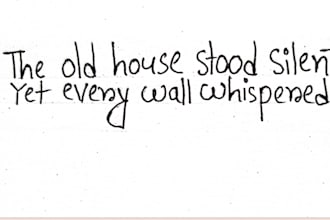 The old house stood silen
Yet every wall whispered